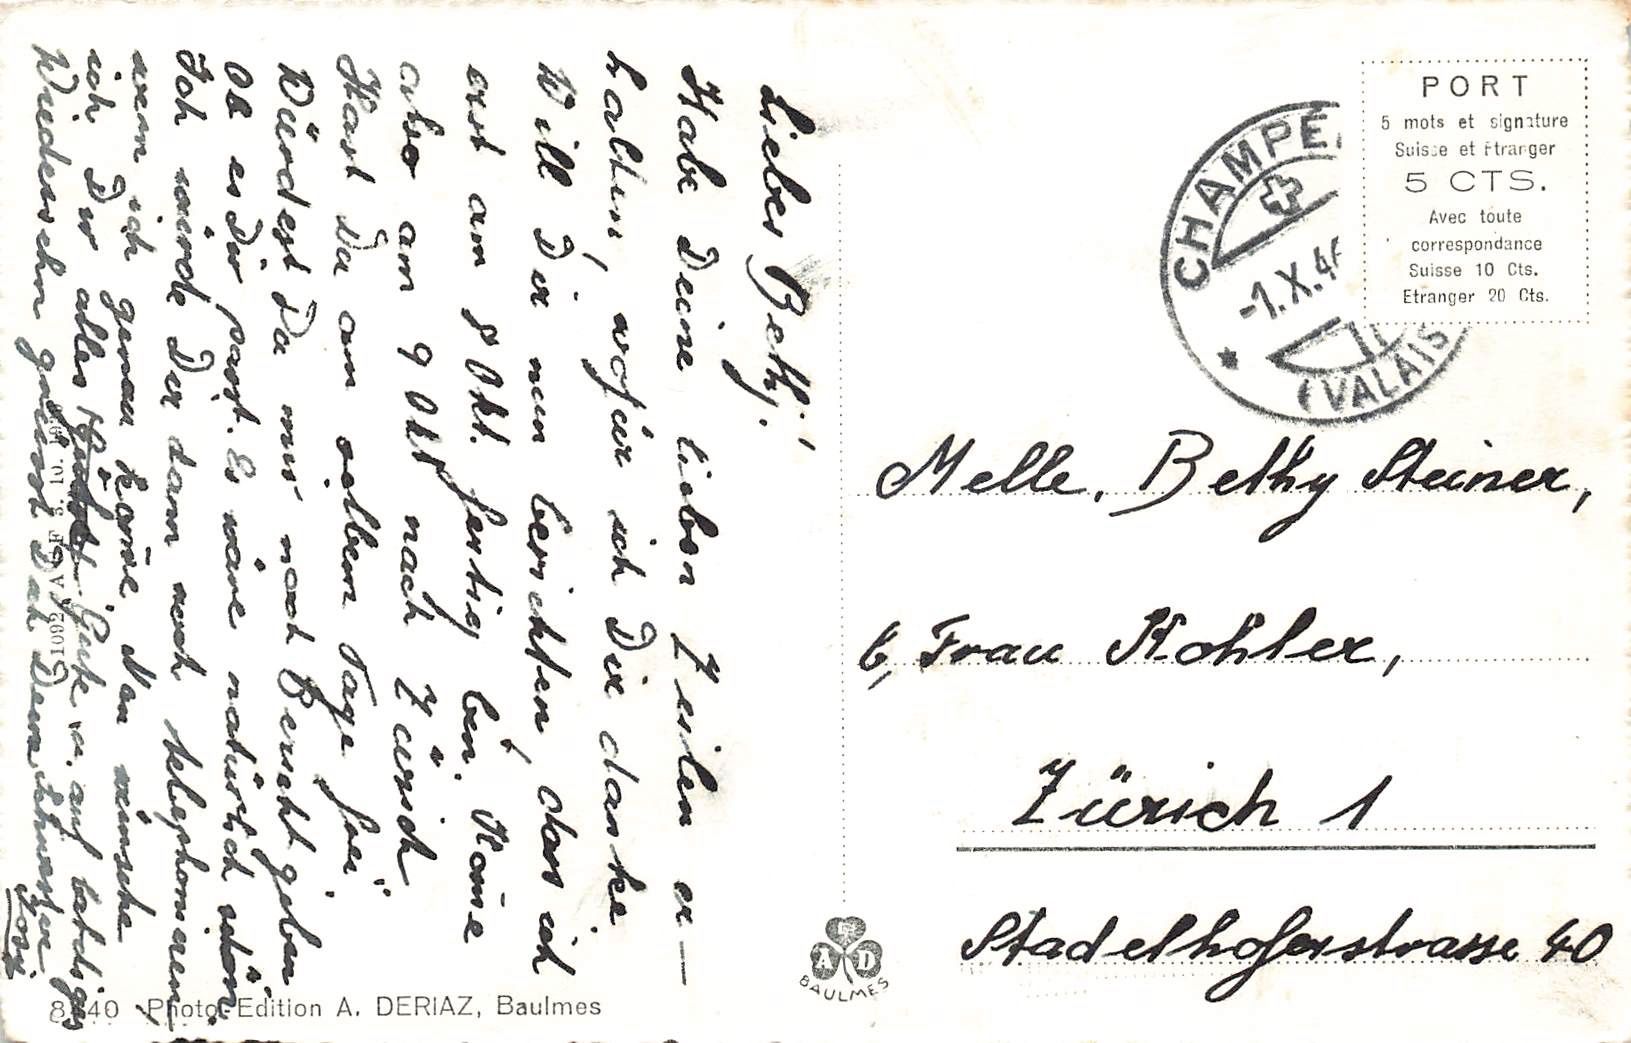 Liebes Bethj!
Habe Deine lieben Zeilen er-
halten, wofür ich Dir danke
Will Dir nun berichten, dass ich
erst am 8 Okt. fertig bin, Kom̄e
also am 9 Okt nach Zürich
Hast Du am selben Tage frei
Würdest Du mir noch Bericht geben
Ob es Dir passt. Es wäre natürlich schön
Ich würde Dir dann noch telephonieren
wenn ich genau kom̄e. Nun wünsche
ich Dir alles Gute u. auf baldiges
Wiedersehn grüsst Dich Deine Schwester
Rosj
CHAMPE
-1.X.4
(VALAIS
PORT
5 mots et signature
Suisse et Etranger
5 CTS.
Avec toute
correspondance
Suisse 10 Cts.
Etranger 20 Cts.
Melle. Bethy Steiner,
b, Frau Kohler,
Zürich 1
Stadelhoferstrasse 40
A D
BAULMES
8440 Photo-Edition A. DERIAZ, Baulmes